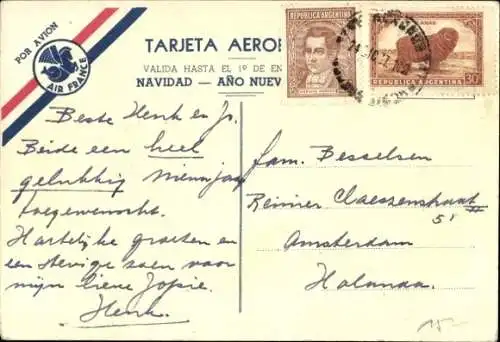 POR AVION
AIR FRANCE
TARJETA AERO
VALIDA HASTA EL 1º DE EN
NAVIDAD — AÑO NUEV
REPUBLICA ARGENTINA
LANAS
REPUBLICA ARGENTINA 30
Beste Henk en Jo.
Beide een heel
gelukkig nieuwjaar
toegewenscht.
Hartelijke groeten en
een stevige zoen voor
mijn lieve Jopie.
Henk.
fam. Besselsen
Reinier Claeszenstraat
51
Amsterdam
Holanda.